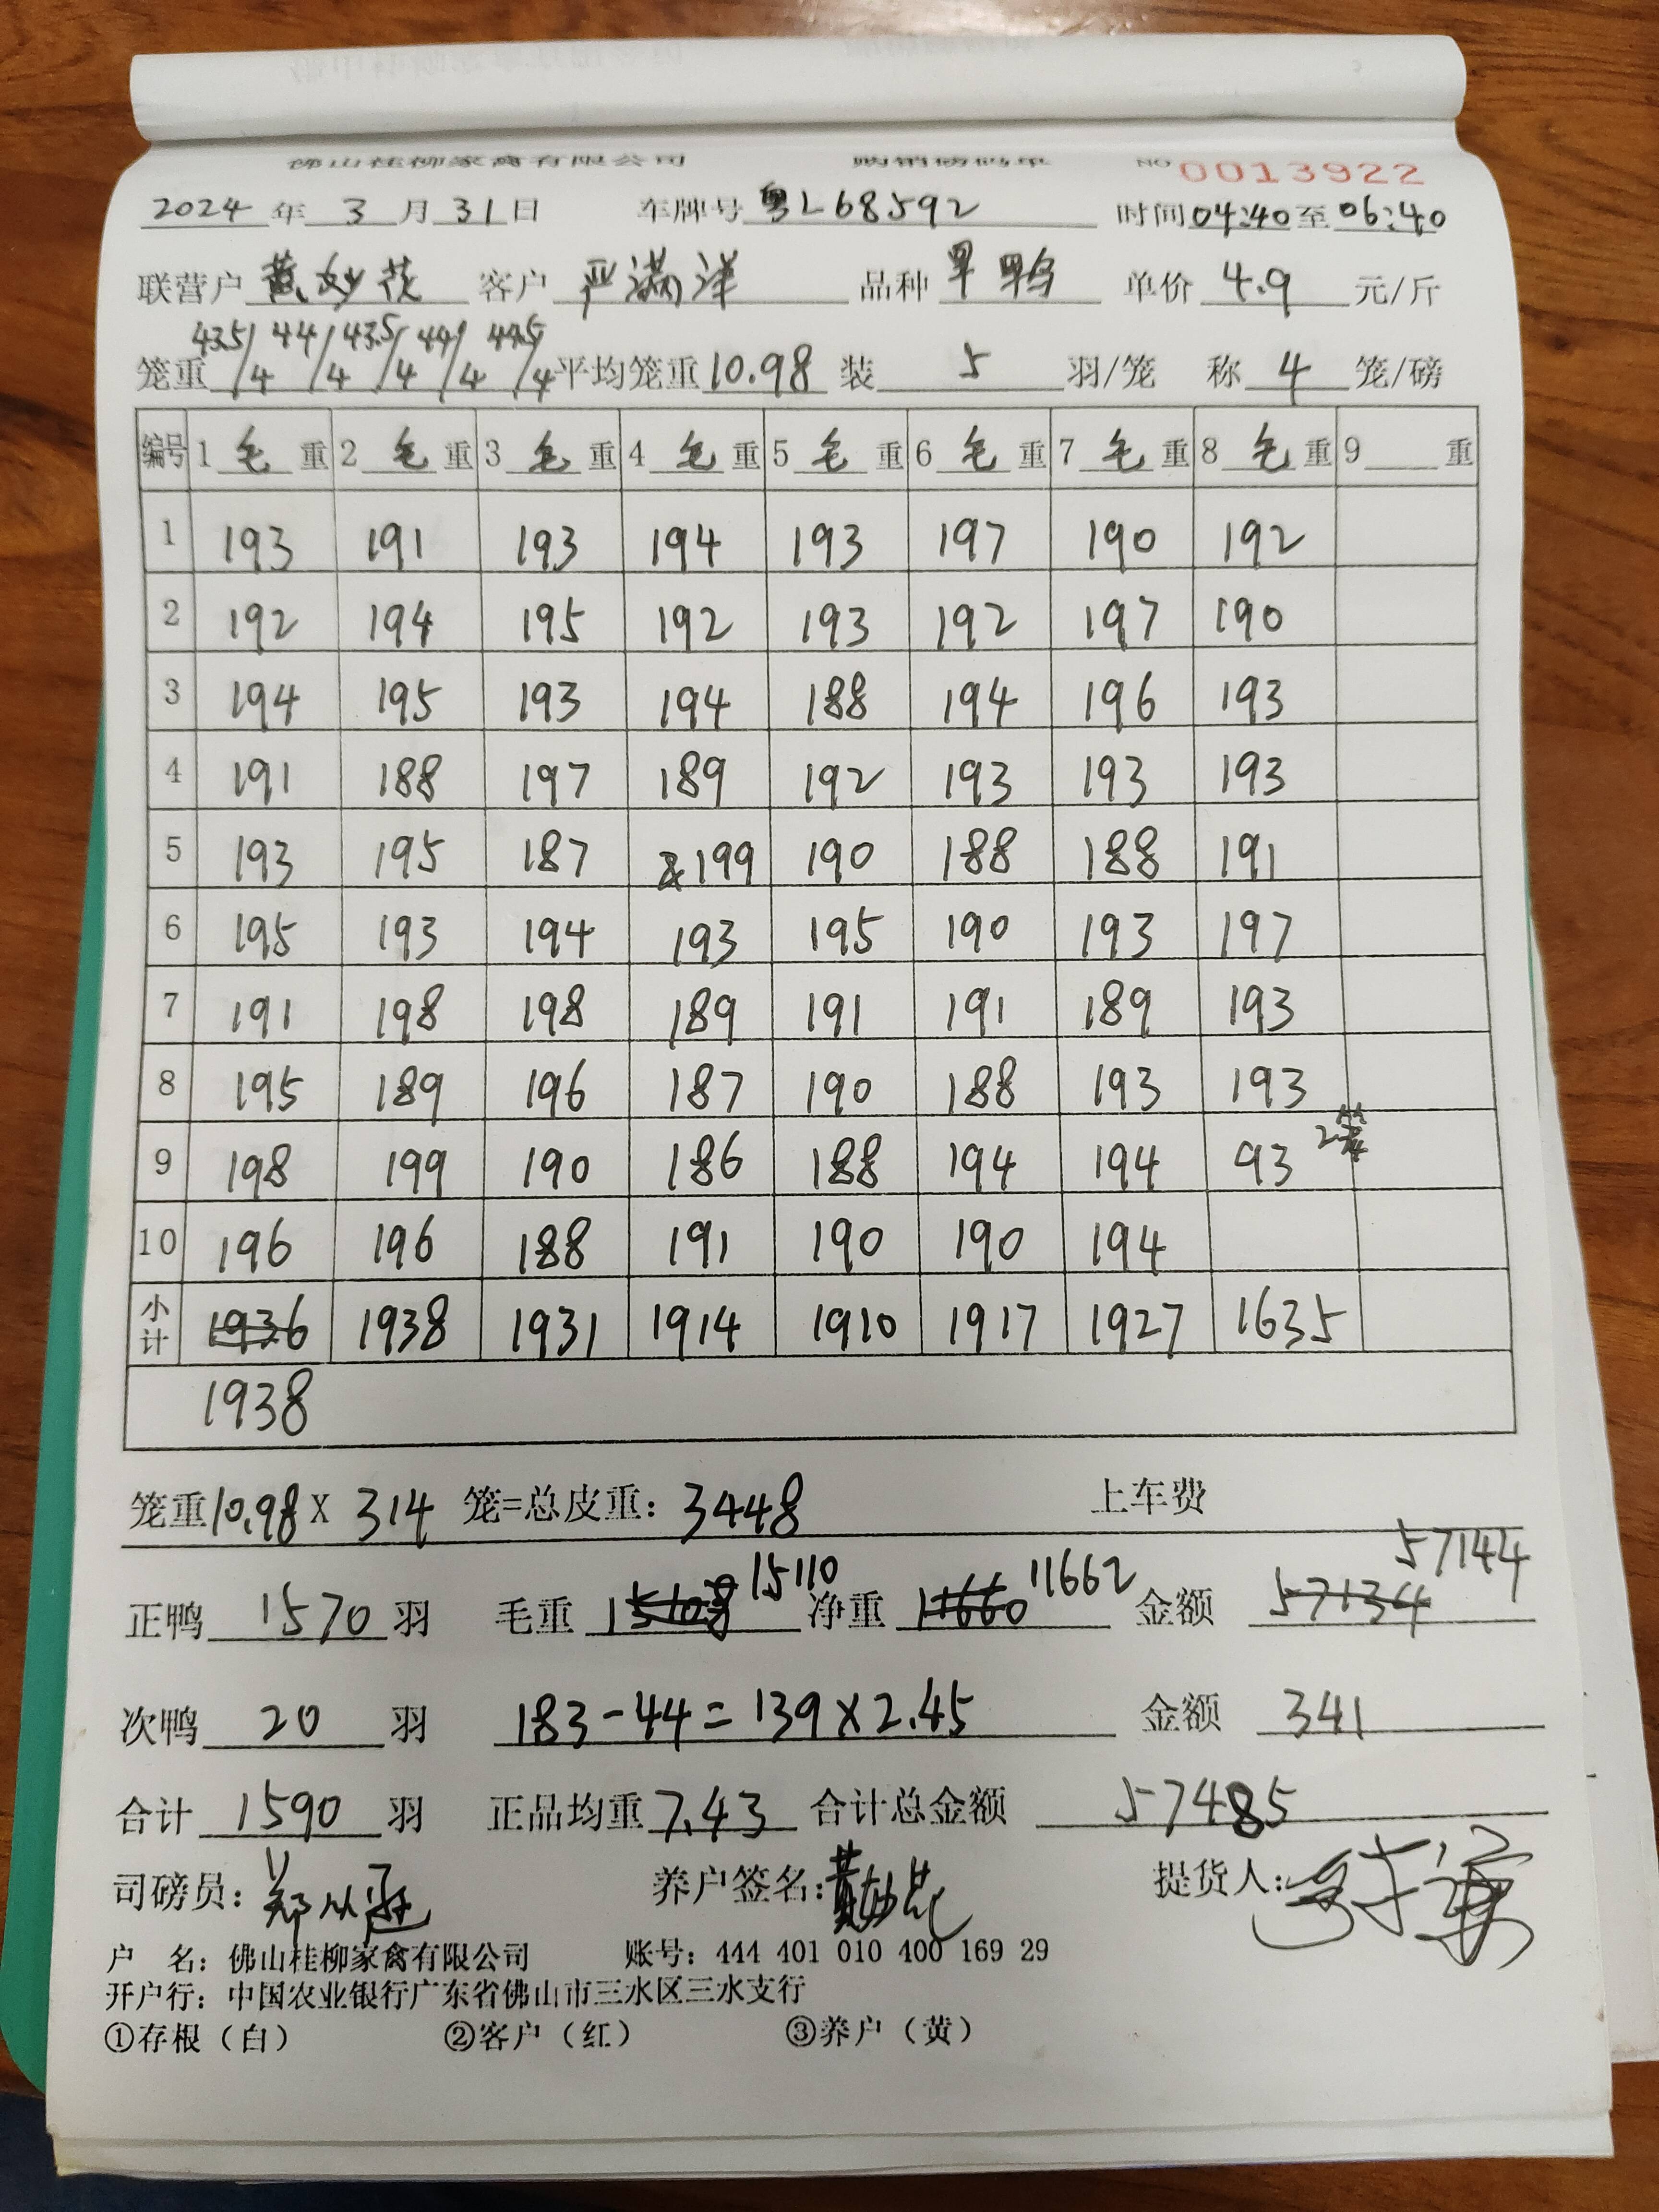 佛山桂柳家禽有限公司 购销磅码单 NO 0013922
2024 年 3 月 31 日 车牌号 粤L68592 时间 04:40 至 06:40
联营户 黄妙花 客户 严满洋 品种 旱鸭 单价 4.9 元/斤
笼重 43.5/4 44/4 43.5/4 44/4 44.5/4 平均笼重 10.98 装 5 羽/笼 称 4 笼/磅
编号 1 毛 重 2 毛 重 3 毛 重 4 毛 重 5 毛 重 6 毛 重 7 毛 重 8 毛 重 9 重
1 193 191 193 194 193 197 190 192
2 192 194 195 192 193 192 197 190
3 194 195 193 194 188 194 196 193
4 191 188 197 189 192 193 193 193
5 193 195 187 199 190 188 188 191
6 195 193 194 193 195 190 193 197
7 191 198 198 189 191 191 189 193
8 195 189 196 187 190 188 193 193
9 198 199 190 186 188 194 194 93 2笼
10 196 196 188 191 190 190 194
小计 1936 1938 1931 1914 1910 1917 1927 1635
1938
笼重 10.98 X 314 笼=总皮重: 3448 上车费
正鸭 1570 羽 毛重 15108 15110 净重 11660 11662 金额 57134 57144
次鸭 20 羽 183-44=139×2.45 金额 341
合计 1590 羽 正品均重 7.43 合计总金额 57485
司磅员: 养户签名: 黄妙花 提货人:
户 名: 佛山桂柳家禽有限公司 账号: 444 401 010 400 169 29
开户行: 中国农业银行广东省佛山市三水区三水支行
①存根（白） ②客户（红） ③养户（黄）